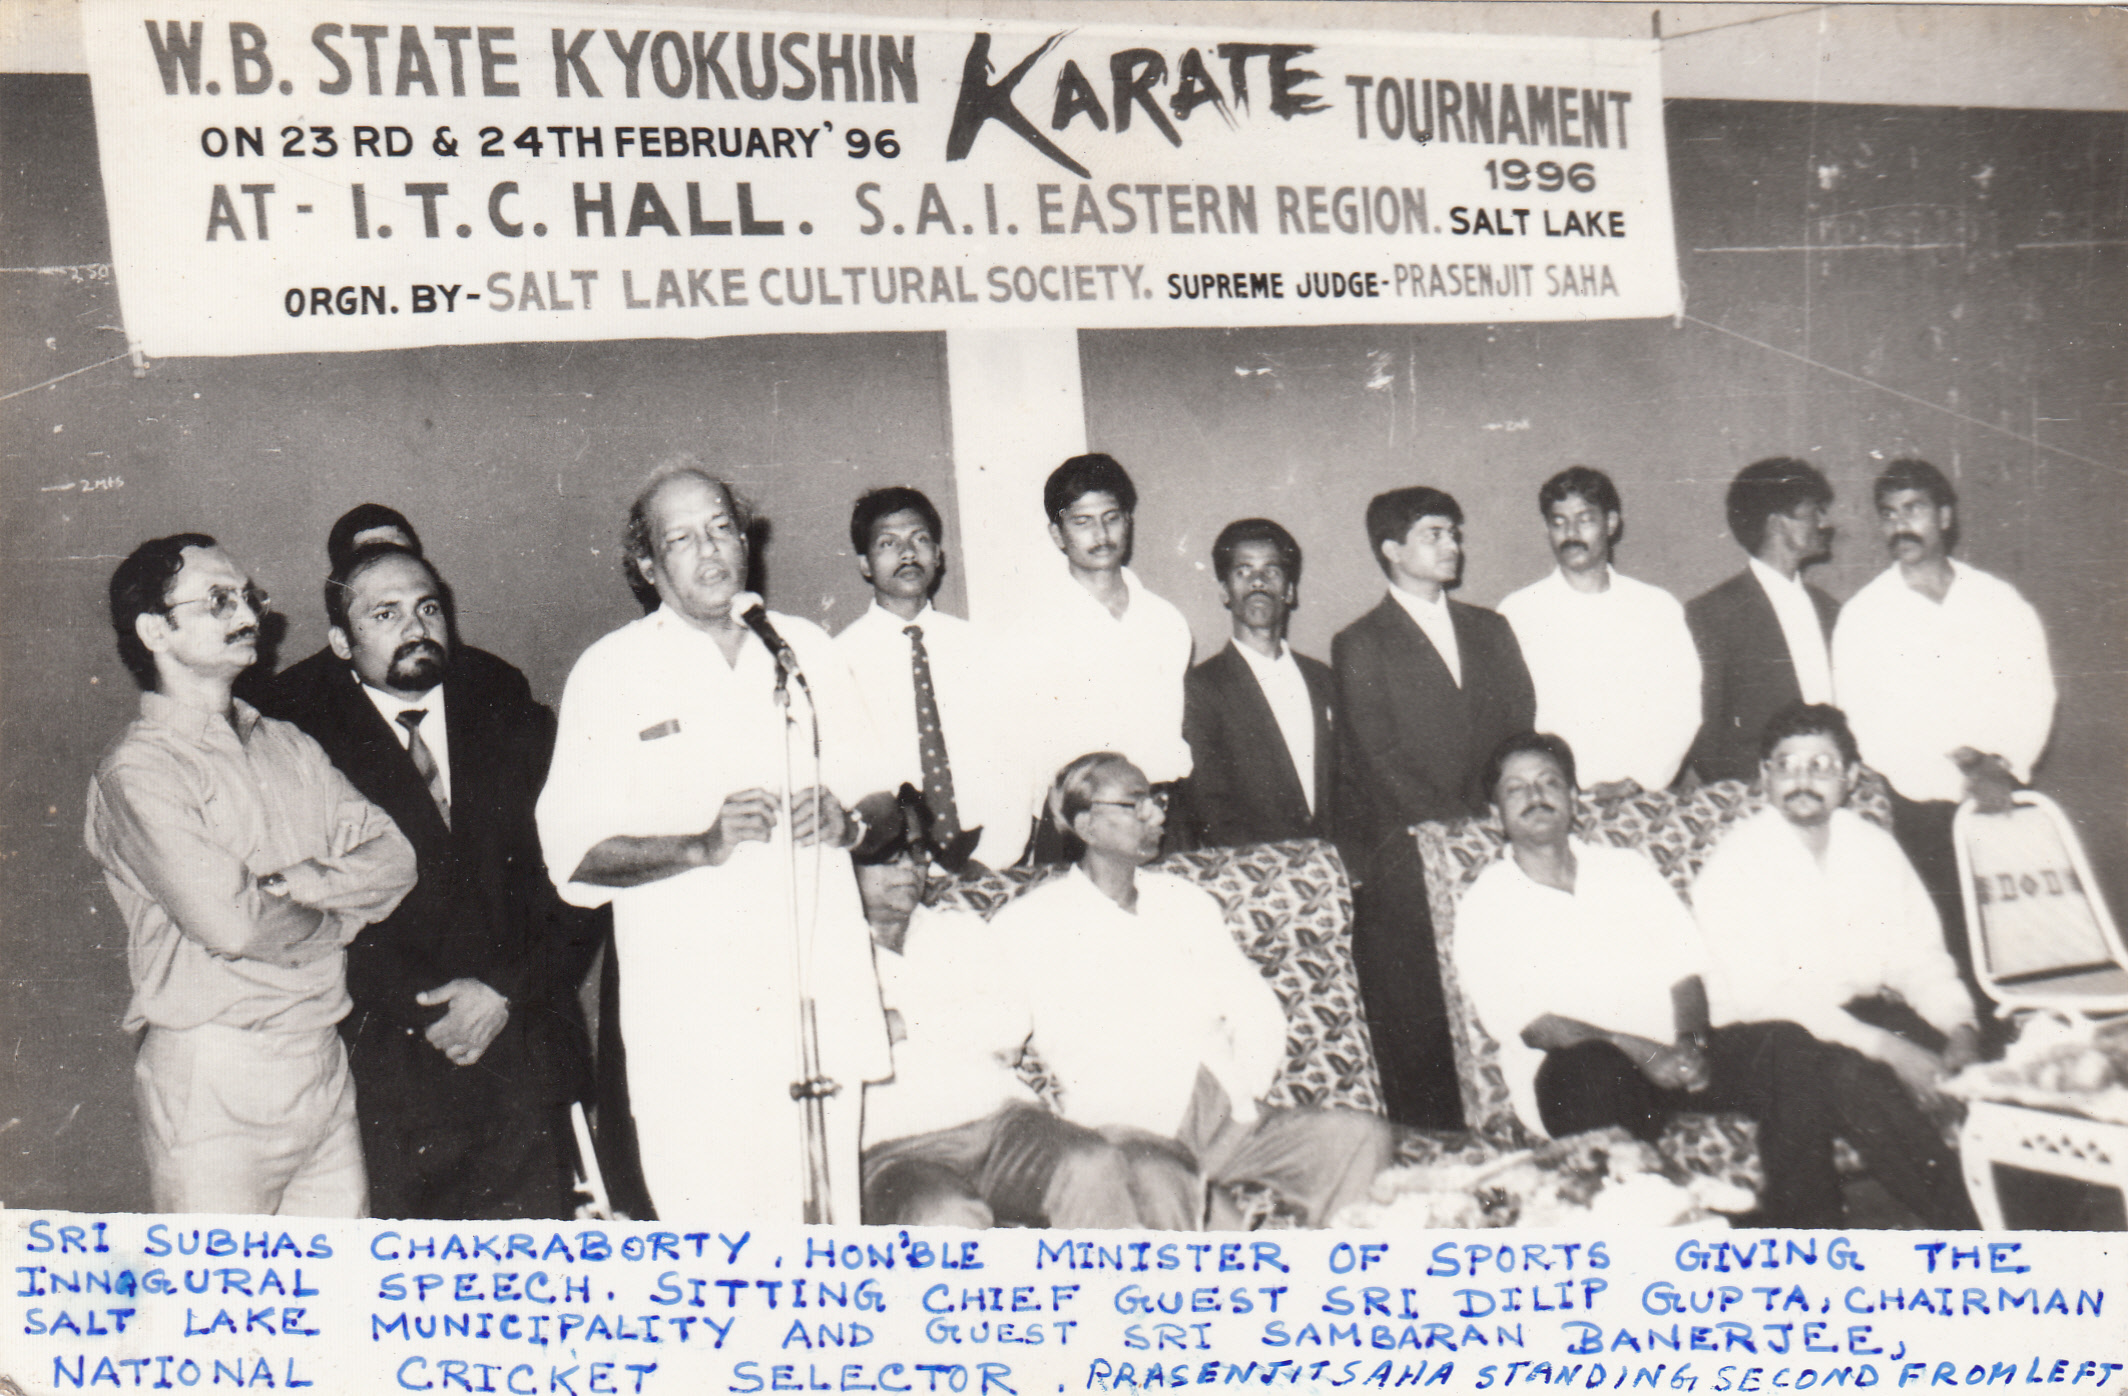 W.B. STATE KYOKUSHIN KARATE TOURNAMENT
ON 23RD & 24TH FEBRUARY' 96
1996
AT - I.T.C. HALL. S.A.I. EASTERN REGION. SALT LAKE
ORGN. BY- SALT LAKE CULTURAL SOCIETY. SUPREME JUDGE- PRASENJIT SAHA
SRI SUBHAS CHAKRABORTY, HON'BLE MINISTER OF SPORTS GIVING THE
INNAGURAL SPEECH. SITTING CHIEF GUEST SRI DILIP GUPTA, CHAIRMAN
SALT LAKE MUNICIPALITY AND GUEST SRI SAMBARAN BANERJEE,
NATIONAL CRICKET SELECTOR. PRASENJIT SAHA STANDING SECOND FROM LEFT